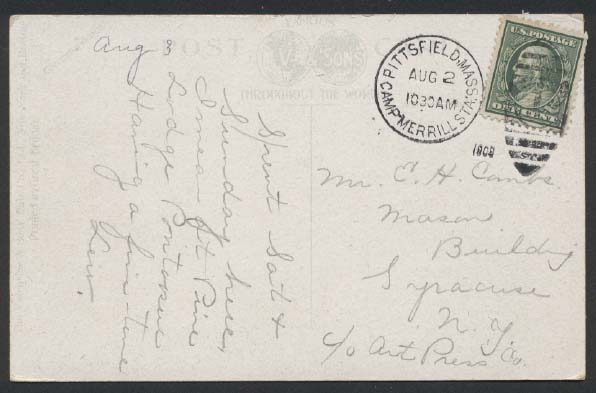 Aug 3
POST
THROUGHOUT THE WORLD
Spent Sat &
Sunday here,
I mean At Pine
Lodge Pontoosuc
Having a fine time
Lew.
PITTSFIELD, MASS.
AUG 2
1030AM
CAMP MERRILL STA.
1909
U.S. POSTAGE
ONE CENT
Mr. C. H. Combs.
Mason
Building
Syracuse
N.Y.
c/o Art Press Co.